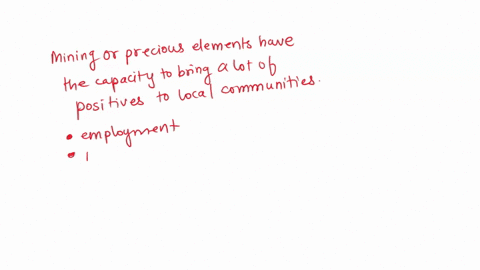 Mining or precious elements have
the capacity to bring a lot of
positives to local communities.
• employment
•